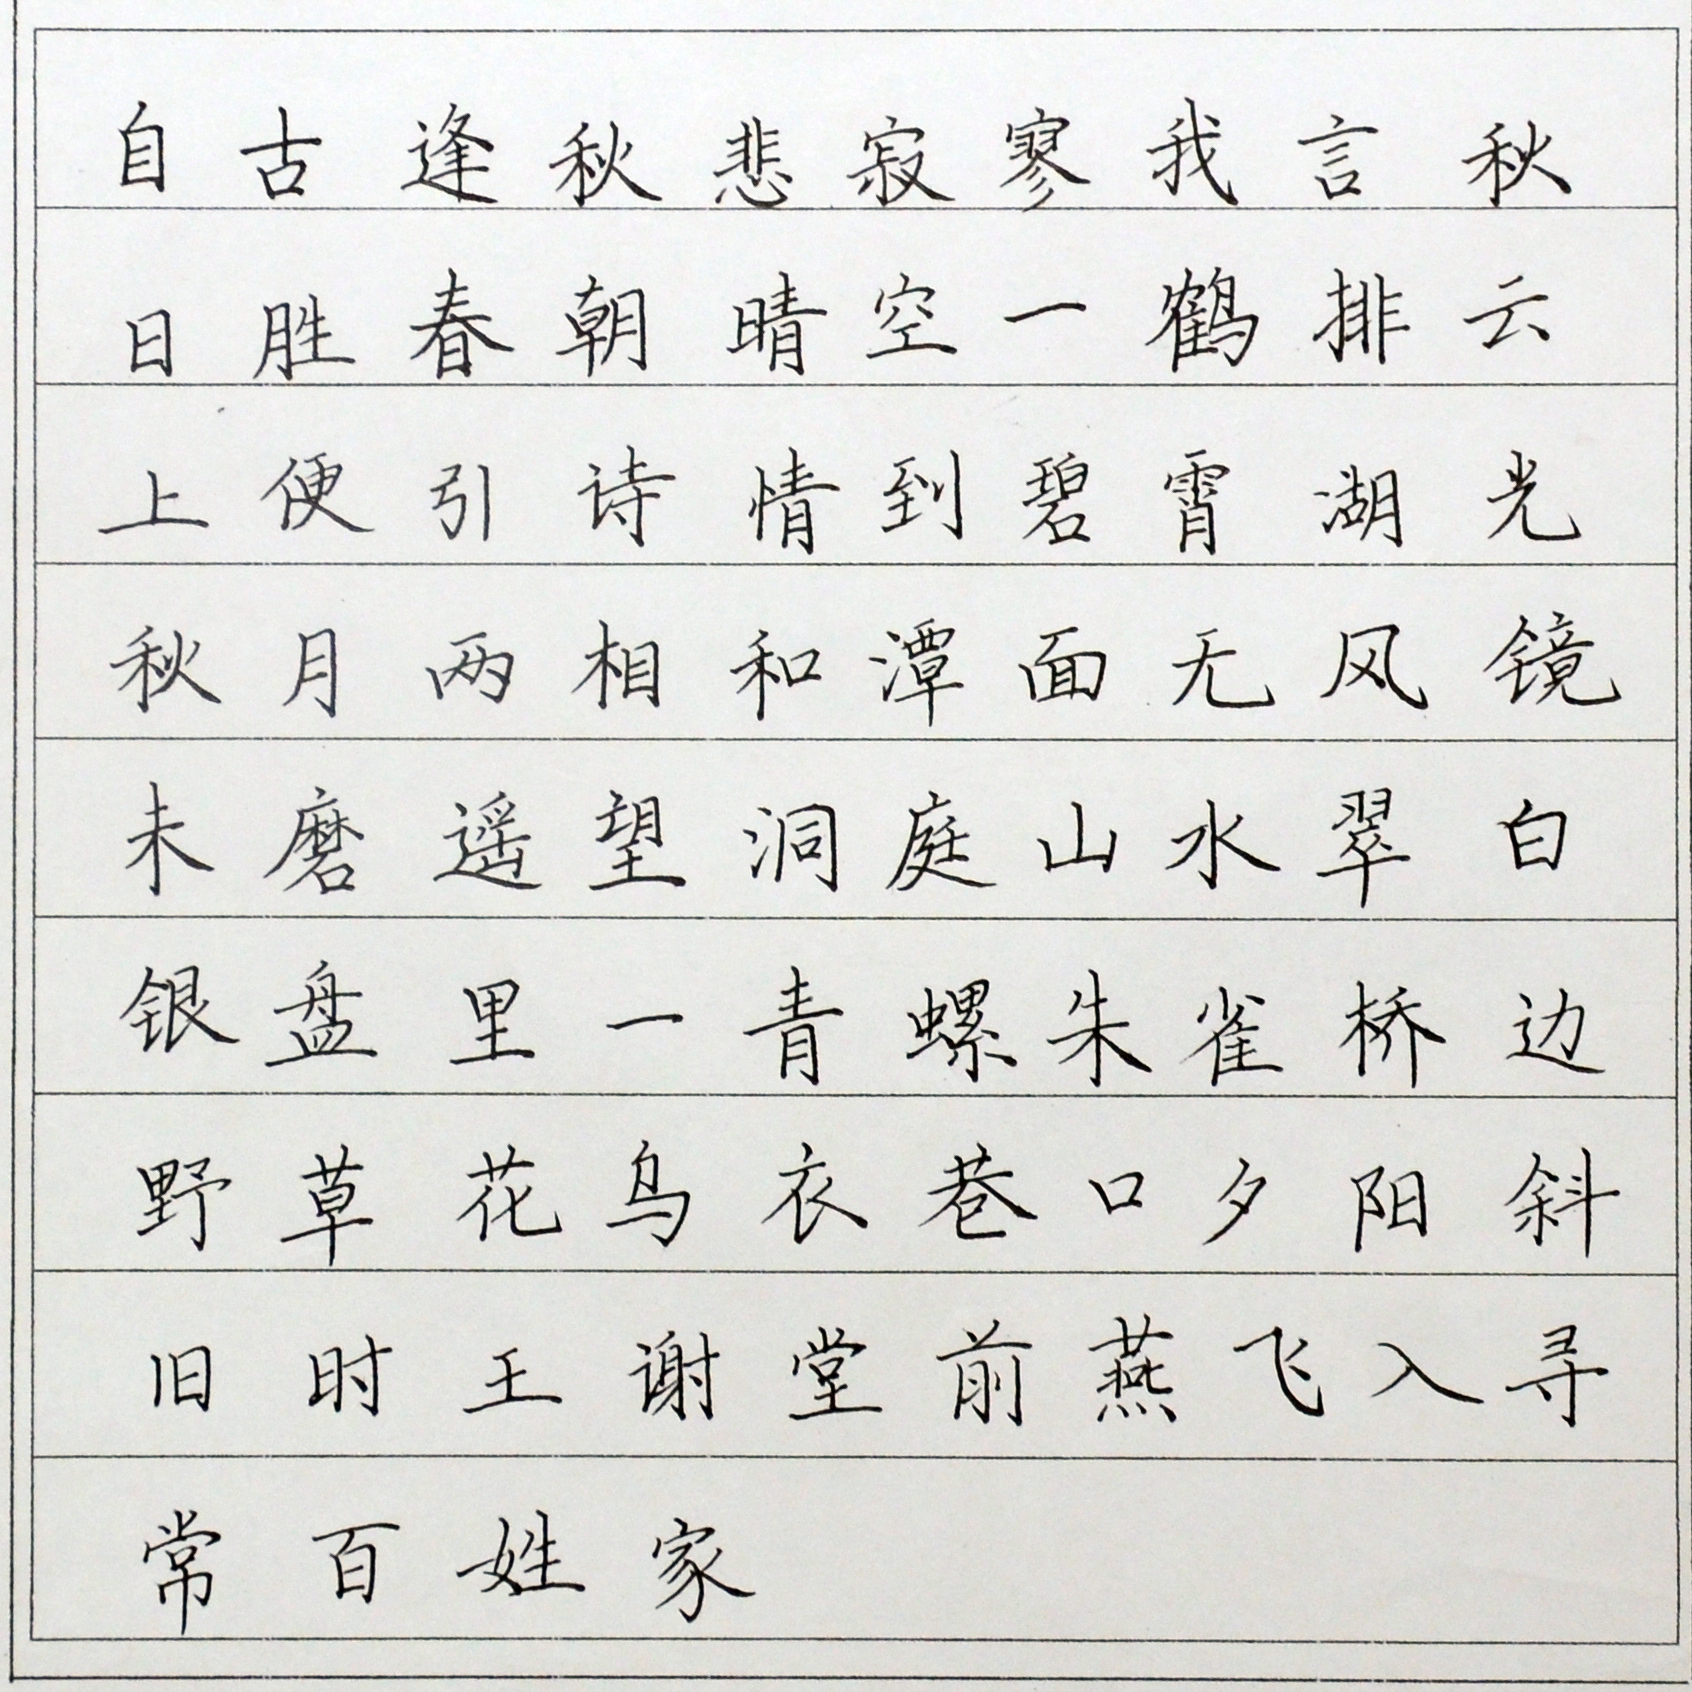 自古逢秋悲寂寥我言秋
日胜春朝晴空一鹤排云
上便引诗情到碧霄湖光
秋月两相和潭面无风镜
未磨遥望洞庭山水翠白
银盘里一青螺朱雀桥边
野草花乌衣巷口夕阳斜
旧时王谢堂前燕飞入寻
常百姓家